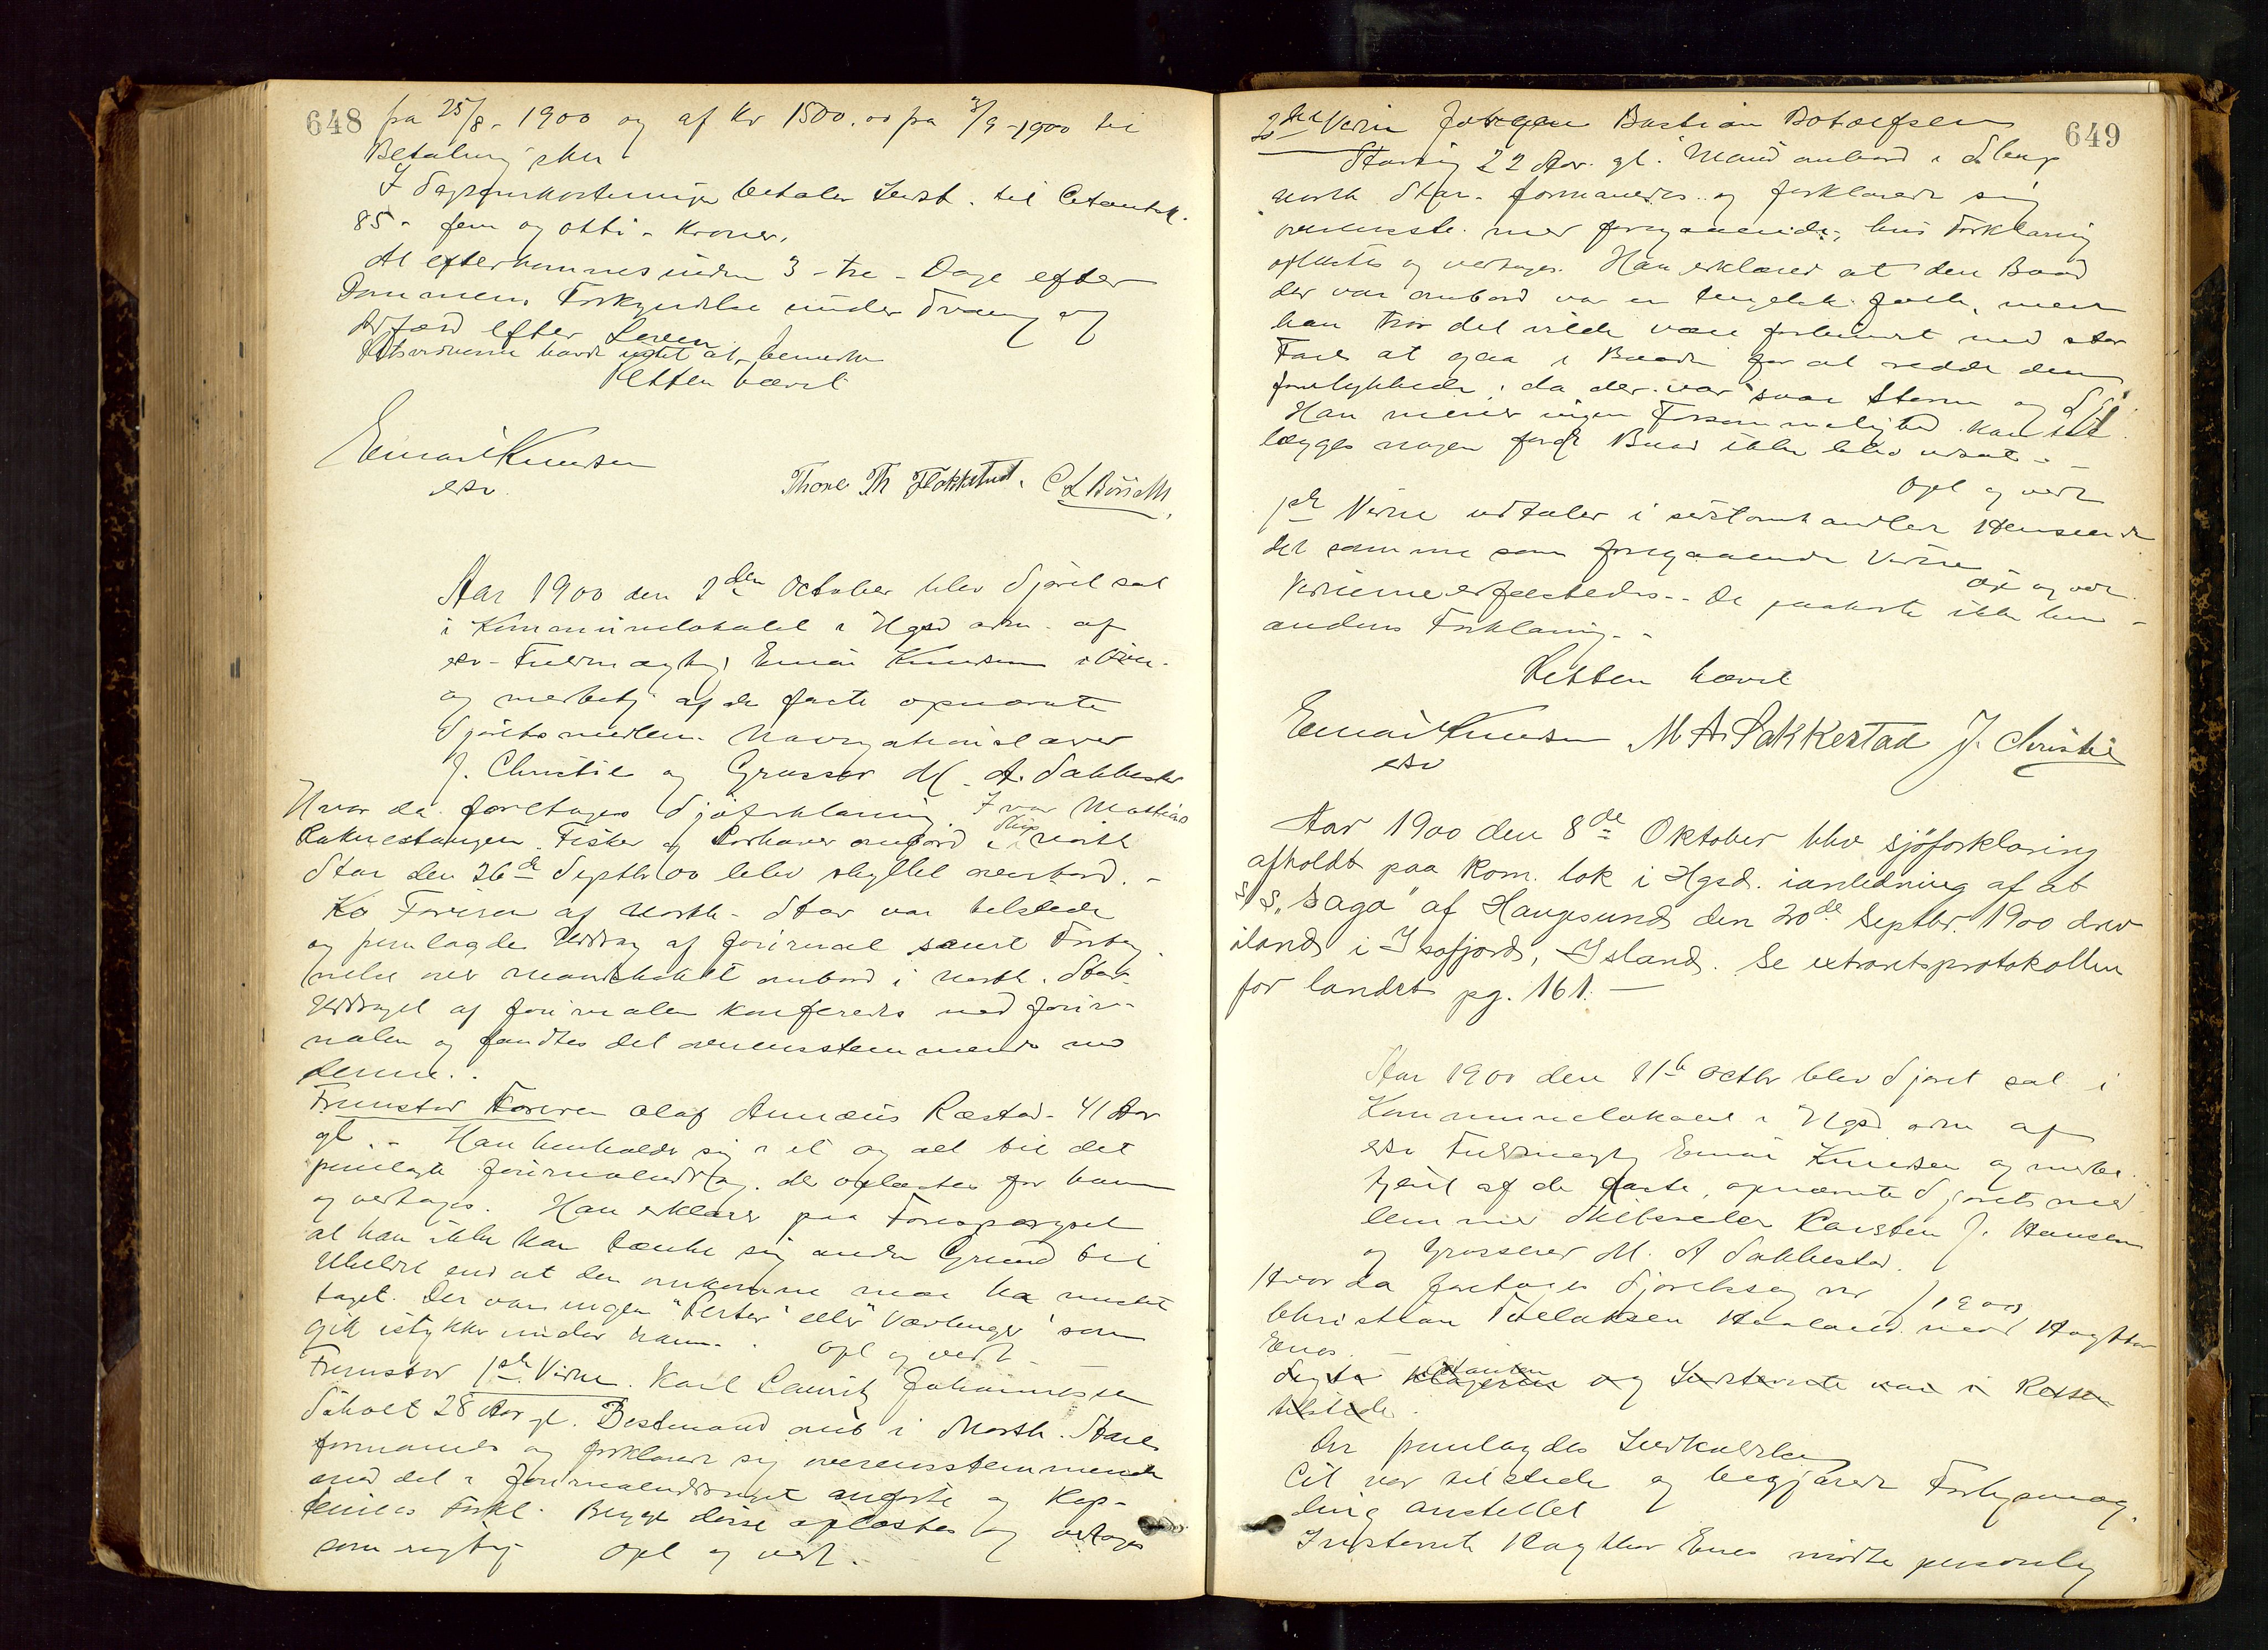 648
fra 25/8 - 1900 og af Kr 1500.00 fra 3/9 - 1900 til
Betaling sker
I Sagsomkostninger betaler Indst. til Citantsk.
85 - fem og otti - Kroner.
At efterkommes inden 3 - tre - Dage efter
Dommens Forkyndelse under Tvang og
Adfærd efter Loven.
Retsvidnerne havde intet at bemerke
Retten hævet
Einar Knudsen
esv.
Thore Th Flokketvedt. C L
Aar 1900 den 2den October blev Sjöret sat
i Kommunelokalet i Hgsd adm. af
esv - Fuldmægtig Einar Knudsen
og medbetj af de faste opnævnte
Sjöretsmedlem. Navigationslærer
J. Christie og Grosser M. A. Sakkestad
Hvor da foretages Sjöforklaring. Ivar Mathias
Fisker og ombord i Slup North
Star den 26de Septb 00 blev skyllet overbord. -
Föreren af North - Star var tilstede
og fremlagde Uddrag af Journal samt Forteg
nelse over Mandskabet ombord i North. Star
Uddraget af Journalen konfereredes med Jour-
nalen og fandtes det overensstemmende med
denne. .
Fremstod Föreren Olaf Ræstad - 41 Aar
gl. - Han henholder sig i et og alt til det
fremlagte Journaluddrag, der oplæstes for ham
og vedtoges. Han erklærer paa Forespørgsel
at han ikke kan tænke sig anden Grund til
Uheldet end at den omkomne maa ha mistet
taget. Der var ingen "Perter" eller "Værlenger" som
gik istykker under ham. . Opl og vedt -
Fremstod 1ste Vidne. Karl Lauritz Johannesen
28 Aar gl. Bestmand omb i North. Star
formanedes og forklarede sig overensstemmende
med det i Journaluddraget anførte og Kap-
teinens Forkl. Begge disse oplæstes og vedtoges
som rigtig Opl og vedt.
649
2det Vidne Jørgen Bastian Botolfsen
22 Aar. gl. Mand ombord i Slup
North Star. formanedes og forklarede sig
overensst. med foregaaende, hvis Forklaring
oplæstes og vedtoges. Han erklærer at den Baad
der var ombord var en men
han tror det vilde være forbundet med stor
Fare at gaa i Baaden for at redde den
forulykkede, da der var svær Storm og Sjö
Han mener ingen Forsømmelighed kan til
lægges nogen fordi Baad ikke blev udsat. -
Opl og vedt
1ste Vidne udtaler i sidstomhandlede Henseende
det samme som foregaaende Vidne
Opl og vedt.
Vidnerne edfæstedes. - De paahørte ikke hin-
andens Forklaring. -
Retten hævet
Einar Knudsen M A Sakkestad J. Christie
esv
Aar 1900 den 8de Oktober blev sjöforklaring
afholdt paa kom. lok i Hgsd. ianledning af at
S/S. "Saga" af Haugesund den 20de Septbr. 1900 drev
iland i Isafjord, Island. Se extraretsprotokollen
for landet pg. 161. -
Aar 1900 den 11te Octbr blev Sjöret sat i
Kommunelokalet i Hgsd adm af
esv Fuldmægtig Einar Knudsen og medbe
tjent af de faste, opnævnte Sjöretsmed
lemmer Skibsreder Karsten J. Hansen
og Grosserer M. A Sakkestad.
Hvor da foretages Sjöretssag nr / 1900
Christian Thorlaksen Haaland mod Haakon
Enes. -
og Indstevnte var i Retten
tilstede.
Der fremlagdes Indkaldelse
Cit var tilstede og begjærede Forligsmæg
ling anstillet
Indstevnte Enes mødte personlig